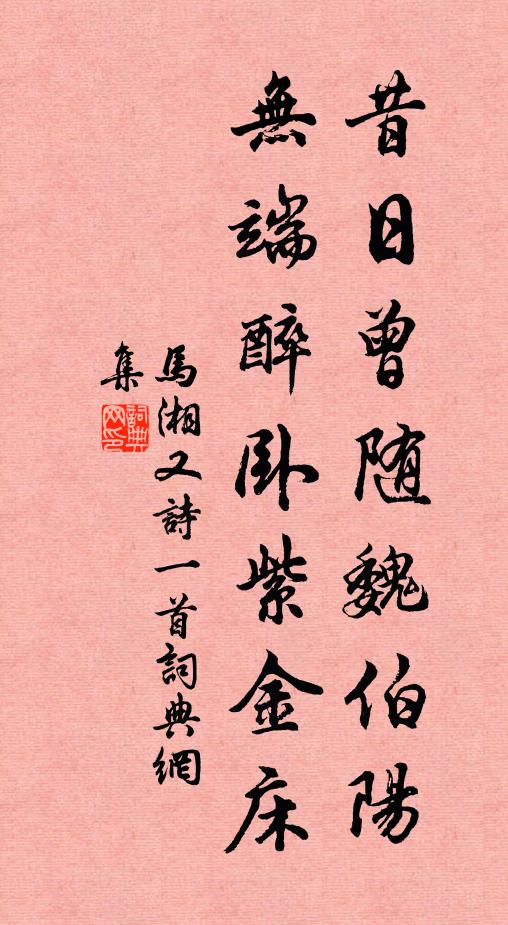 昔日曾随魏伯陽
無端醉卧紫金床
馬湘又詩一首詞典網
集
詞典網印